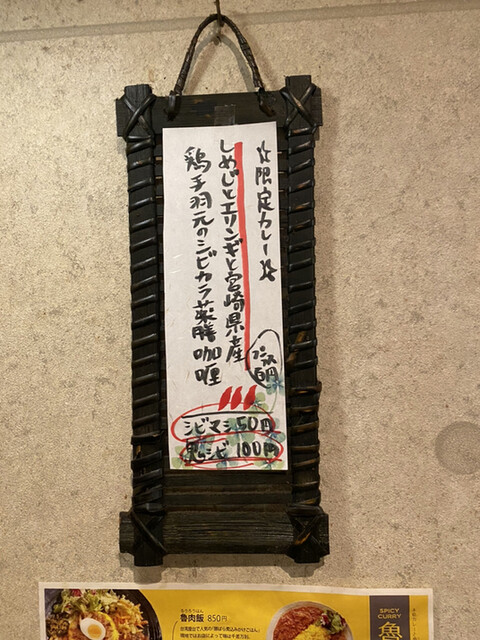 ☆限定カレー☆
しめじとエリンギと宮崎県産
鶏手羽元のシビカラ薬膳咖喱
シビマシ50円
鬼シビ100円
魯肉飯 850円
SPICY
CURRY
魚